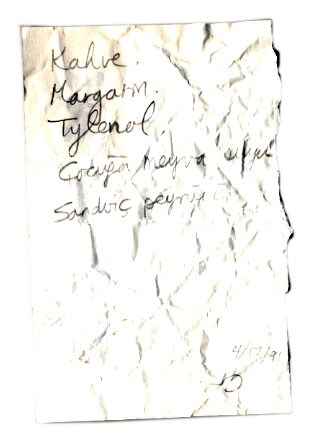 Kahve.
Margarin.
Tylenol.
Çocuğa meyva suyu
Sandviç peyniri
4/17/91